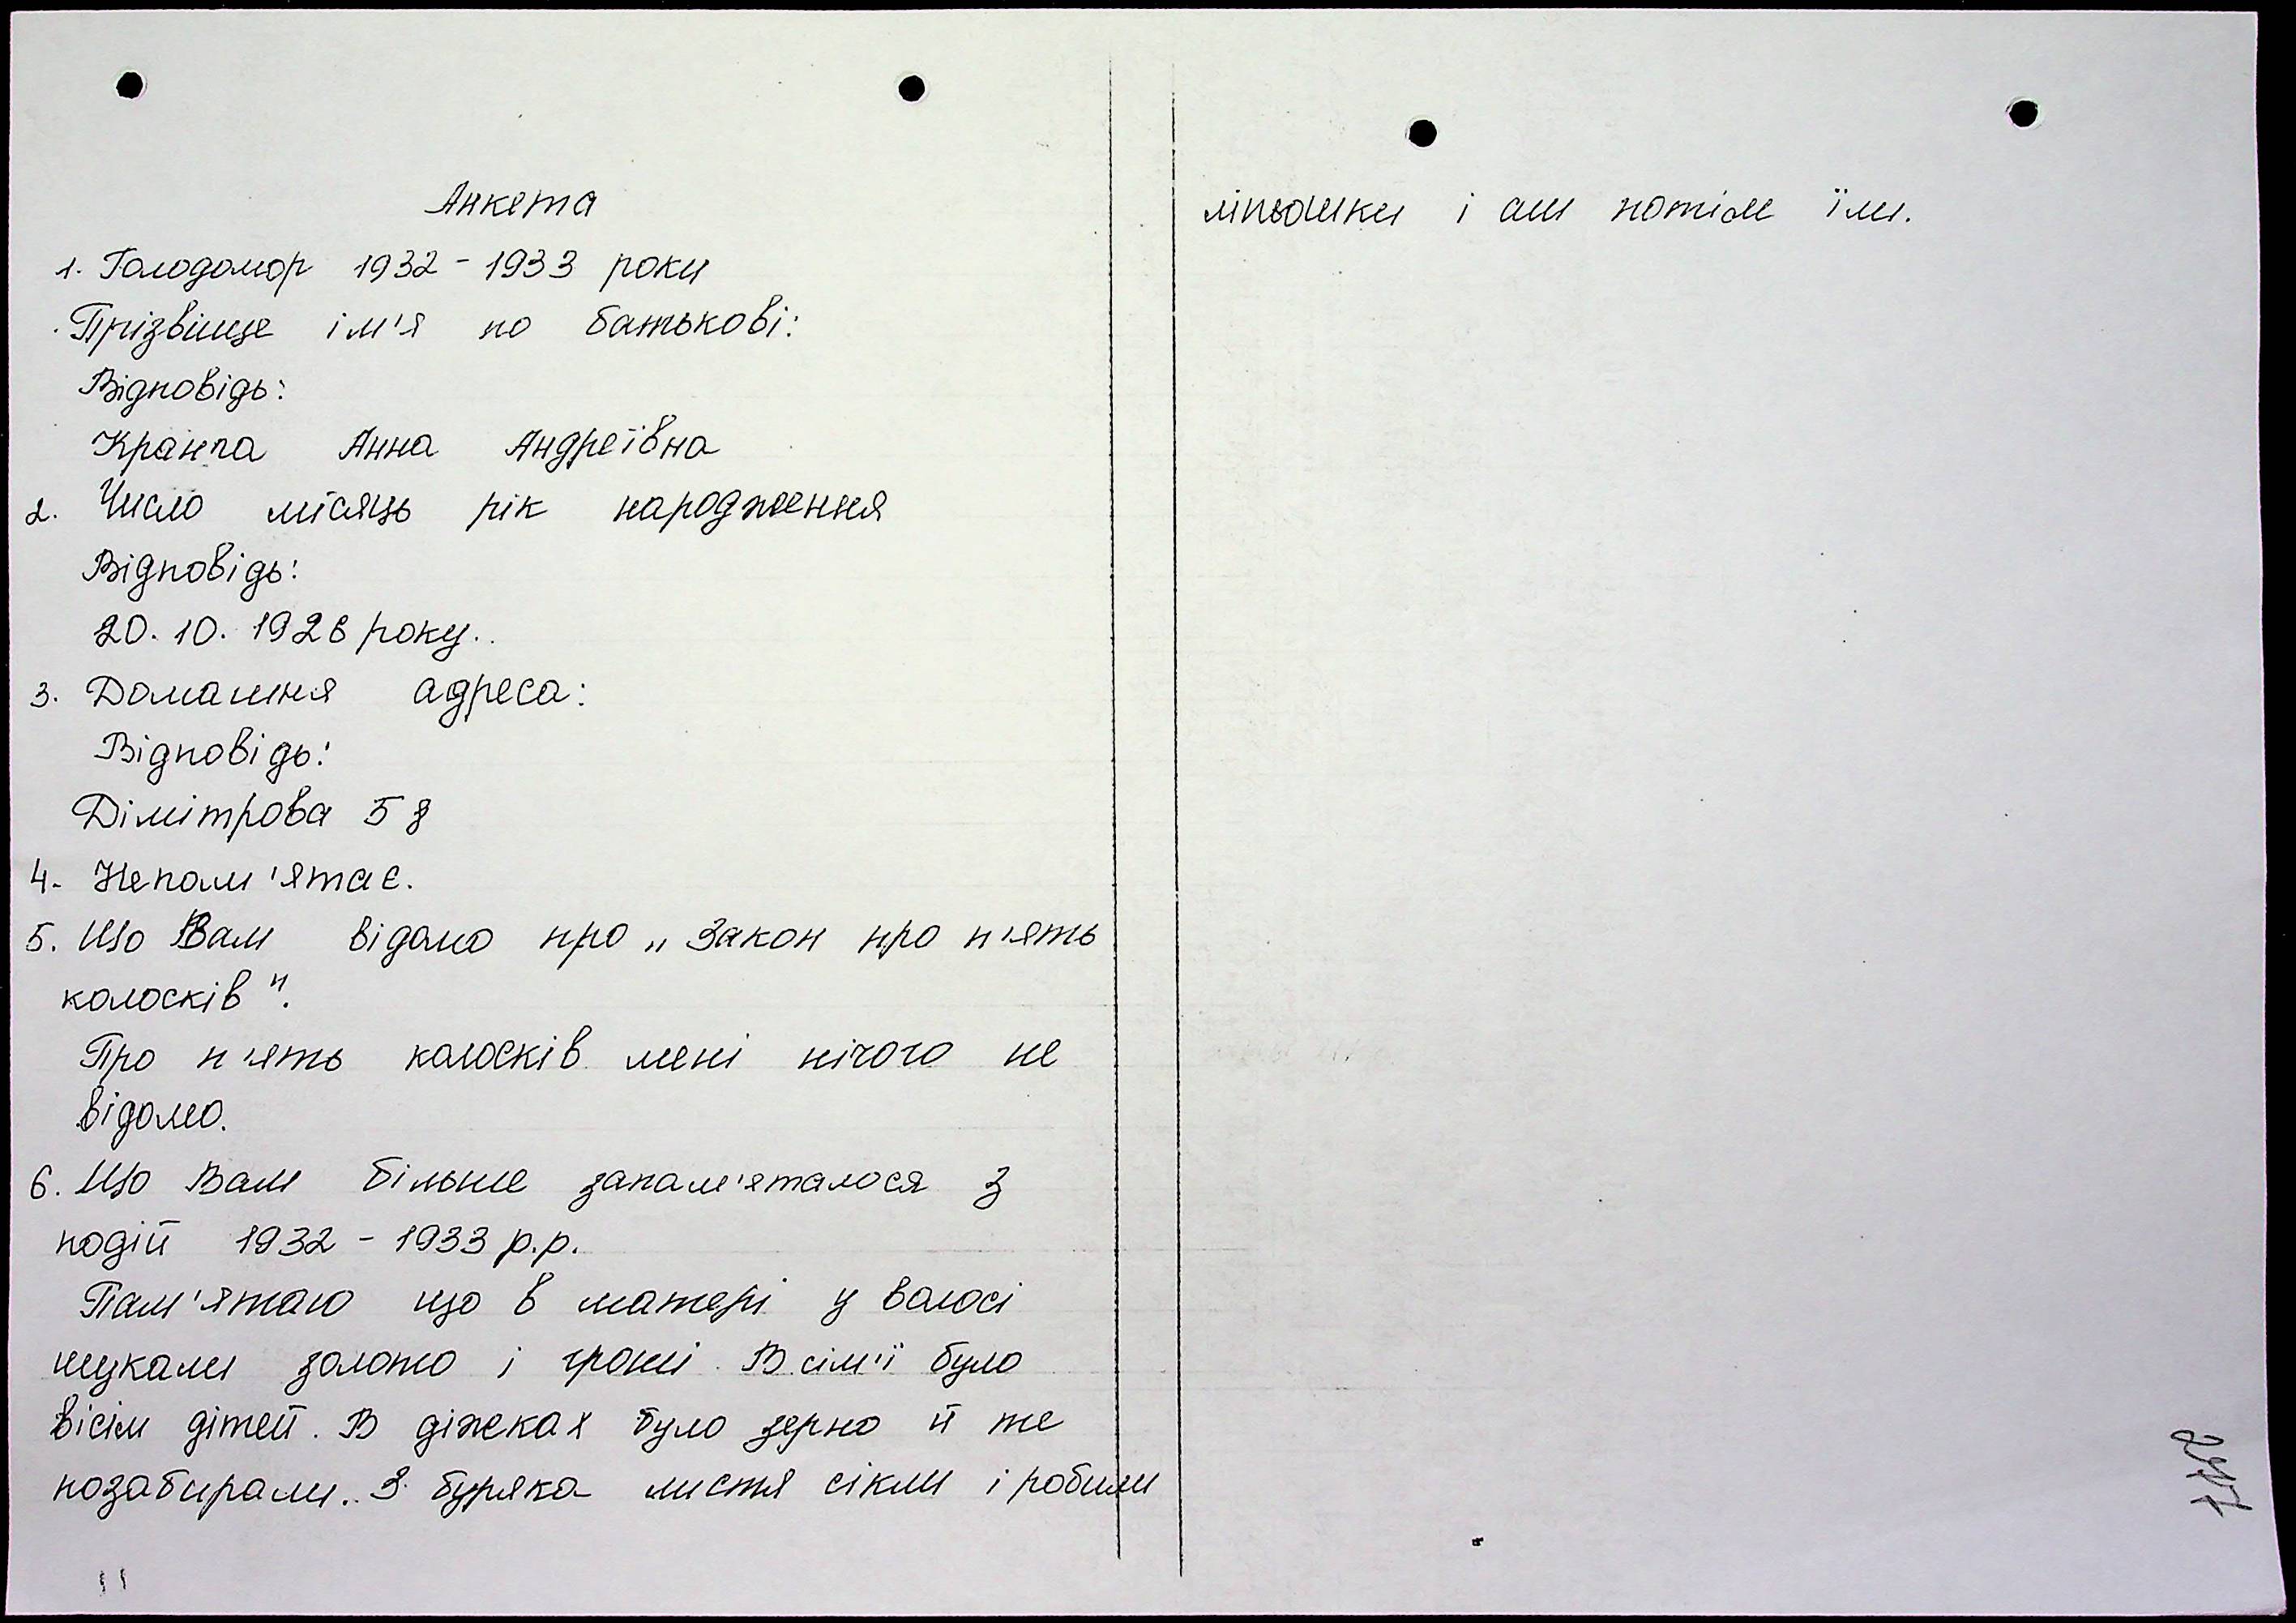 Анкета
1. Голодомор 1932 - 1933 роки
Прізвіще ім'я по батькові:
Відповідь:
Анна Андреївна
2. Число місяць рік народження
Відповідь:
20. 10. 1926 року.
3. Домашня адреса:
Відповідь:
Дімітрова
4. Непам'ятає.
5. Що Вам відомо про „Закон про п'ять
колосків".
Про п'ять колосків мені нічого не
відомо.
6. Що Вам більше запам'яталося з
подій 1932 - 1933 р.р.
Пам'ятаю що в матері у волосі
шукали золото і гроші. В сім'ї було
вісім дітей. В діжеках було зерно й те
позабирали. З буряка листя сікли і робили
ліпьошки і потім їли.